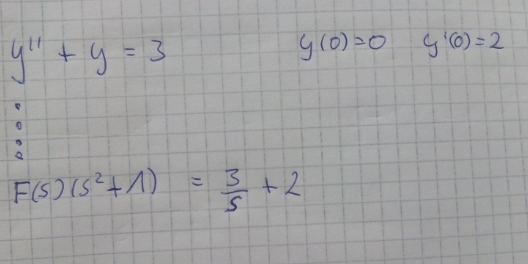 y'' + y = 3 y(0)=0 y'(0)=2
F(s)(s²+1) = 3/s + 2